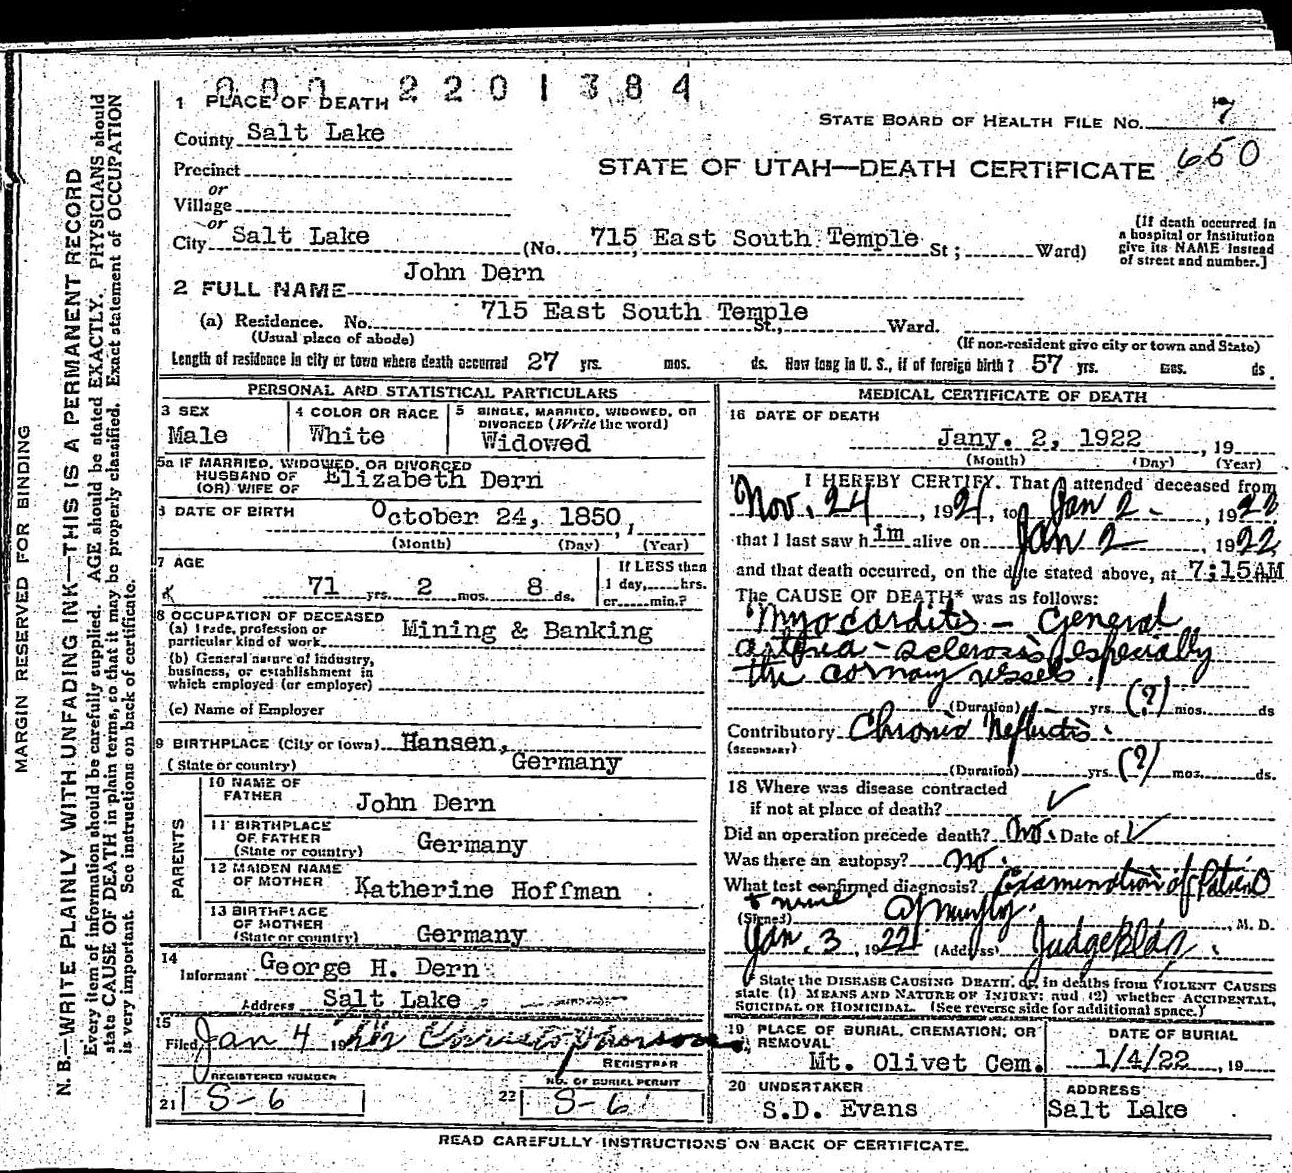 0002201384
1 PLACE OF DEATH
STATE BOARD OF HEALTH FILE NO. 7
County Salt Lake
650
STATE OF UTAH—DEATH CERTIFICATE
Precinct
or
Village
or
City Salt Lake (No. 715 East South Temple St; Ward)
[If death occurred in
a hospital or institution
give its NAME instead
of street and number.]
John Dern
2 FULL NAME
(a) Residence. No. 715 East South Temple St., Ward.
(Usual place of abode) (If non-resident give city or town and State)
Length of residence in city or town where death occurred 27 yrs. mos. ds. How long in U. S., if of foreign birth? 57 yrs. mos. ds.
PERSONAL AND STATISTICAL PARTICULARS
3 SEX
Male
4 COLOR OR RACE
White
5 SINGLE, MARRIED, WIDOWED, OR
DIVORCED (Write the word)
Widowed
5a IF MARRIED, WIDOWED, OR DIVORCED
HUSBAND OF Elizabeth Dern
(OR) WIFE OF
6 DATE OF BIRTH October 24, 1850,
(Month) (Day) (Year)
7 AGE
71 yrs. 2 mos. 8 ds.
If LESS then
1 day, hrs.
or min.?
8 OCCUPATION OF DECEASED
(a) Trade, profession or
particular kind of work Mining & Banking
(b) General nature of industry,
business, or establishment in
which employed (or employer)
(c) Name of Employer
9 BIRTHPLACE (City or town) Hansen,
(State or country) Germany
PARENTS
10 NAME OF
FATHER John Dern
11 BIRTHPLACE
OF FATHER
(State or country) Germany
12 MAIDEN NAME
OF MOTHER Katherine Hoffman
13 BIRTHPLACE
OF MOTHER
(State or country) Germany
14
Informant George H. Dern
Address Salt Lake
15
Filed Jan 4
REGISTRAR
REGISTERED NUMBER
21 S-6
NO. OF BURIAL PERMIT
22 S-6
MEDICAL CERTIFICATE OF DEATH
16 DATE OF DEATH
Jany. 2, 1922, 19
(Month) (Day) (Year)
I HEREBY CERTIFY. That I attended deceased from
Nov. 24, 1921, to Jan 2., 1922
that I last saw him alive on Jan 2, 1922
and that death occurred, on the date stated above, at 7:15AM
The CAUSE OF DEATH* was as follows:
Myocarditis - General
arterio-sclerosis, especially
the coronary vessels.
(Duration) yrs. (?) mos. ds
Contributory Chronic Nephritis.
(SECONDARY)
(Duration) yrs. (?) mos. ds.
18 Where was disease contracted
if not at place of death?
Did an operation precede death? No. Date of
Was there an autopsy? No.
What test confirmed diagnosis? Examination of Patient
& urine
(Signed) , M. D.
Jan. 3, 1922 (Address) Judge Bldg.
* State the DISEASE CAUSING DEATH, or, in deaths from VIOLENT CAUSES
state (1) MEANS AND NATURE OF INJURY; and (2) whether ACCIDENTAL,
SUICIDAL OR HOMICIDAL. (See reverse side for additional space.)
19 PLACE OF BURIAL, CREMATION, OR
REMOVAL
Mt. Olivet Cem.
DATE OF BURIAL
1/4/22, 19
20 UNDERTAKER
S.D. Evans
ADDRESS
Salt Lake
READ CAREFULLY INSTRUCTIONS ON BACK OF CERTIFICATE.
MARGIN RESERVED FOR BINDING
N. B.—WRITE PLAINLY WITH UNFADING INK—THIS IS A PERMANENT RECORD
Every item of information should be carefully supplied. AGE should be stated EXACTLY. PHYSICIANS should
state CAUSE OF DEATH in plain terms, so that it may be properly classified. Exact statement of OCCUPATION
is very important. See instructions on back of certificate.